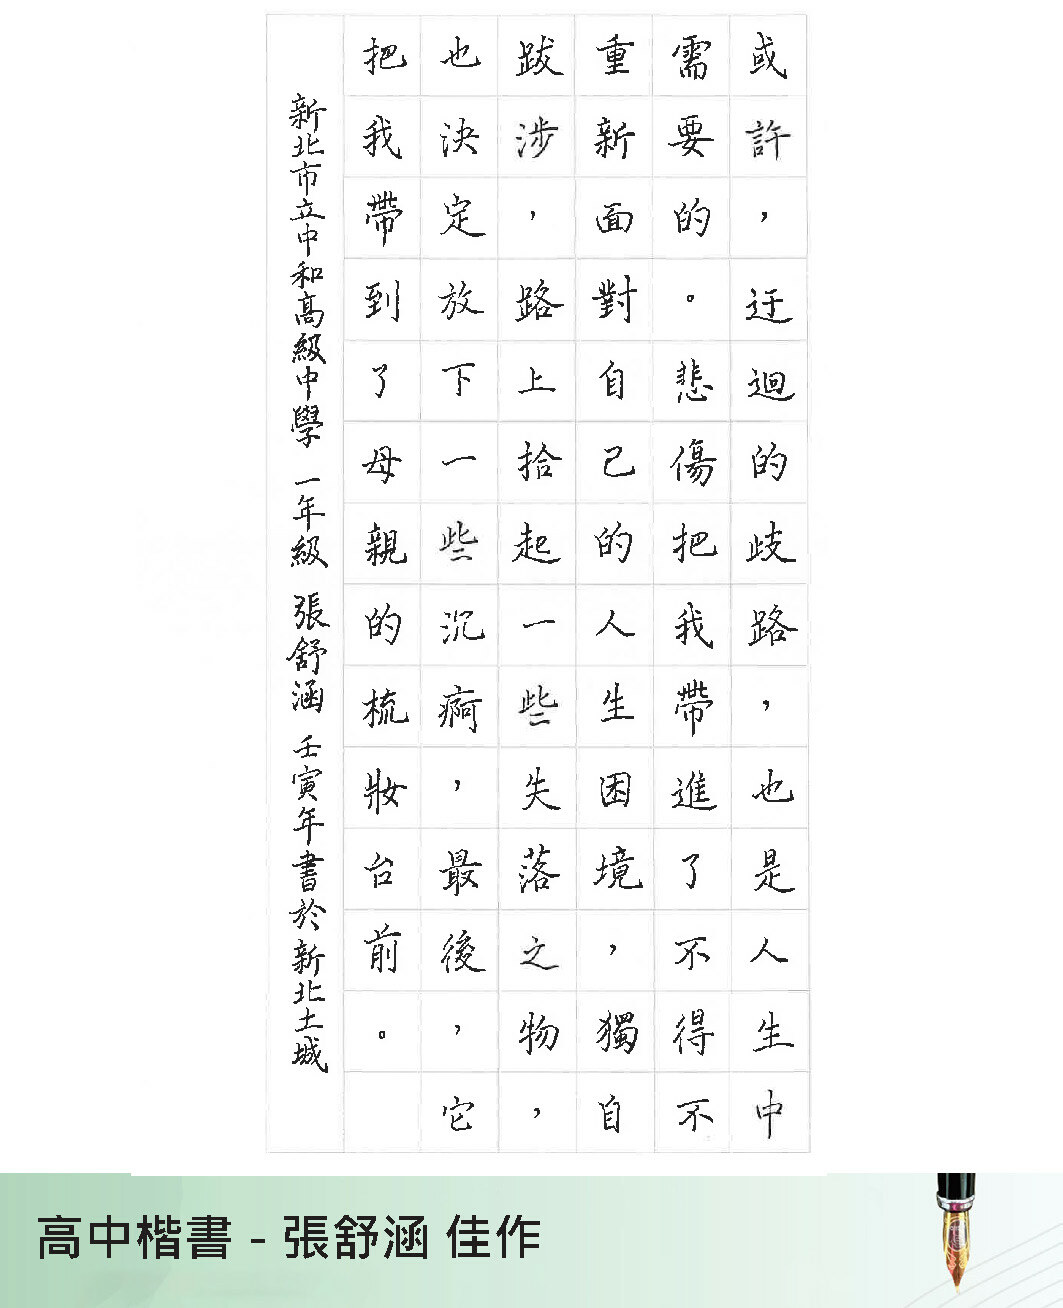 或許，迂迴的歧路，也是人生中
需要的。悲傷把我帶進了不得不
重新面對自己的人生困境，獨自
跋涉，路上拾起一些失落之物，
也決定放下一些沉痾，最後，它
把我帶到了母親的梳妝台前。
新北市立中和高級中學 一年級 張舒涵 壬寅年書於新北土城
高中楷書 - 張舒涵 佳作